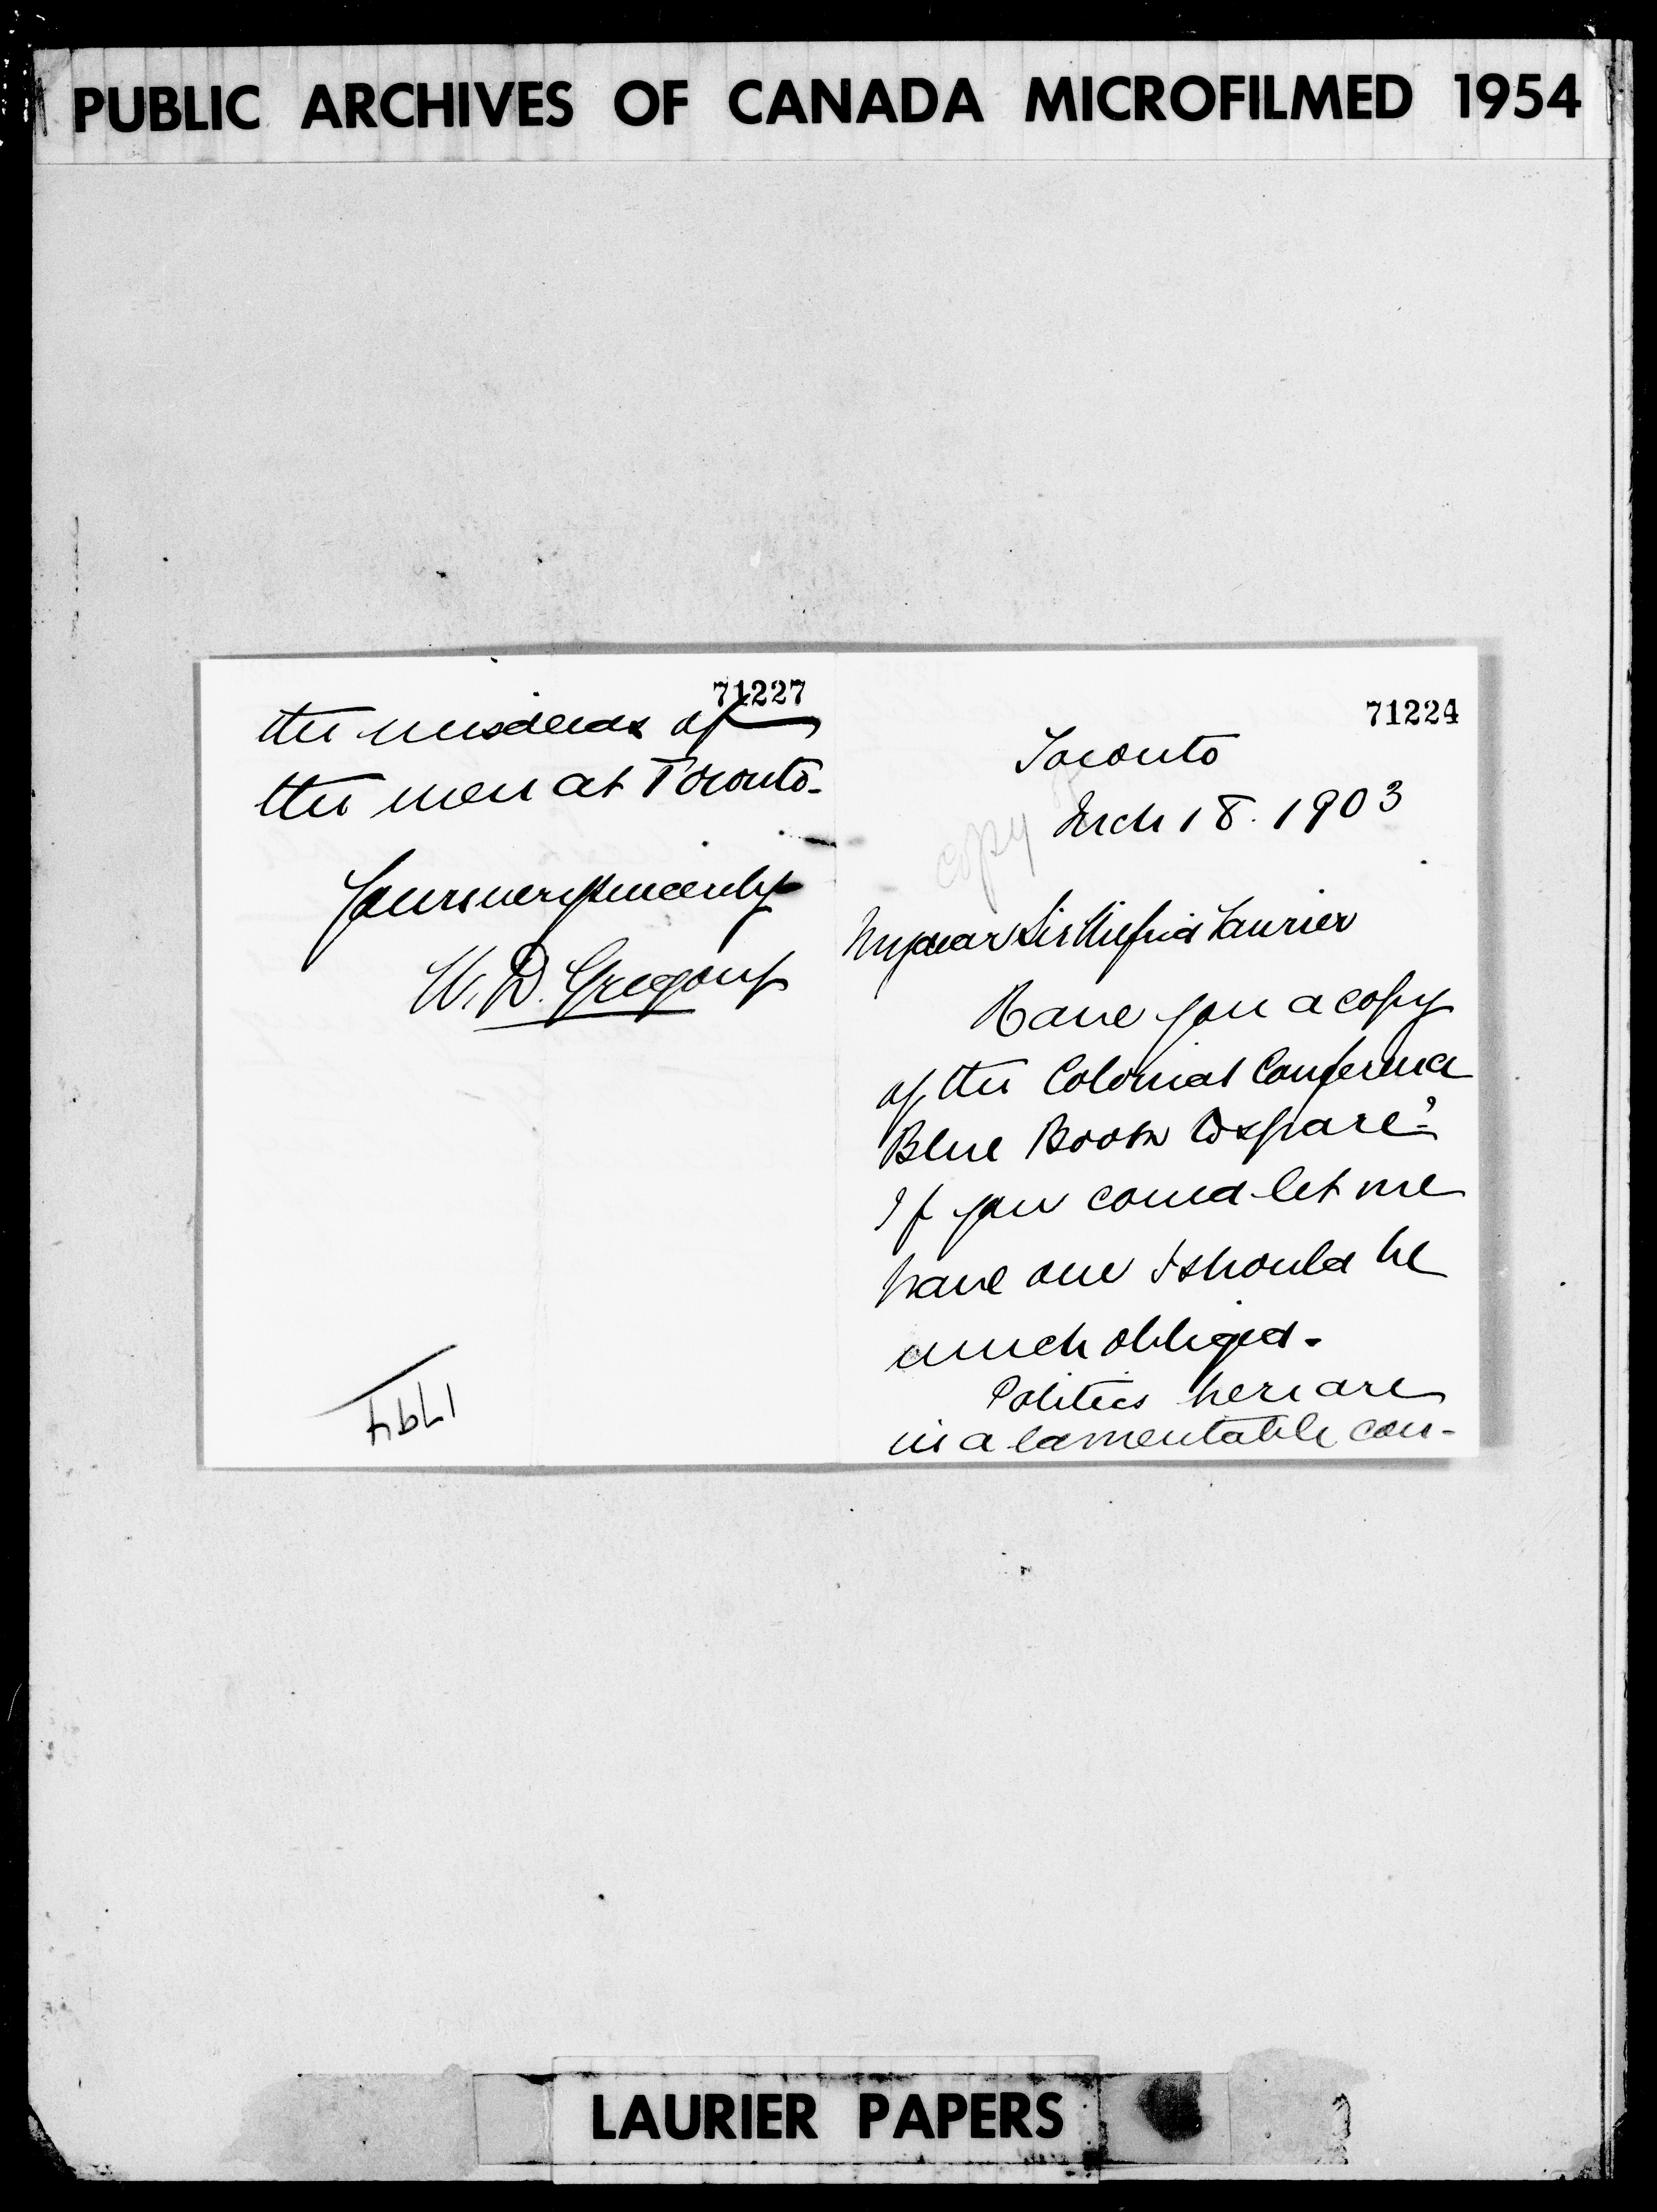 PUBLIC ARCHIVES OF CANADA MICROFILMED 1954
71227
the misdeeds of
the men at Toronto.
Yours very sincerely
W. D. Gregory
1794
71224
Toronto
Mch 18. 1903
copy
My dear Sir Wilfrid Laurier
Have you a copy
of the Colonial Conference
Blue Book to spare?
If you could let me
have one I should be
much obliged.
Politics here are
in a lamentable con-
LAURIER PAPERS